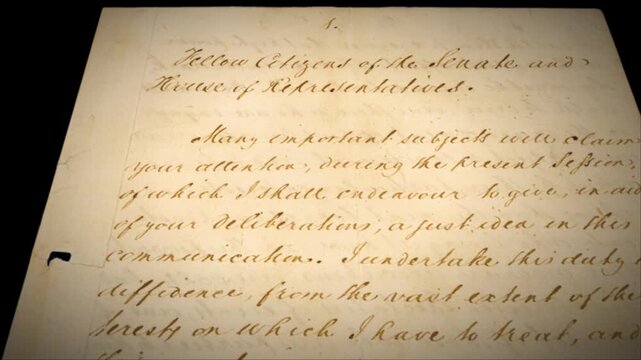 1.
Fellow Citizens of the Senate and
House of Representatives.
Many important subjects will claim
your attention, during the present Session,
of which I shall endeavour to give, in aid
of your deliberations, a just idea in this
communication. I undertake this duty
diffidence, from the vast extent of the
terests on which I have to treat, and